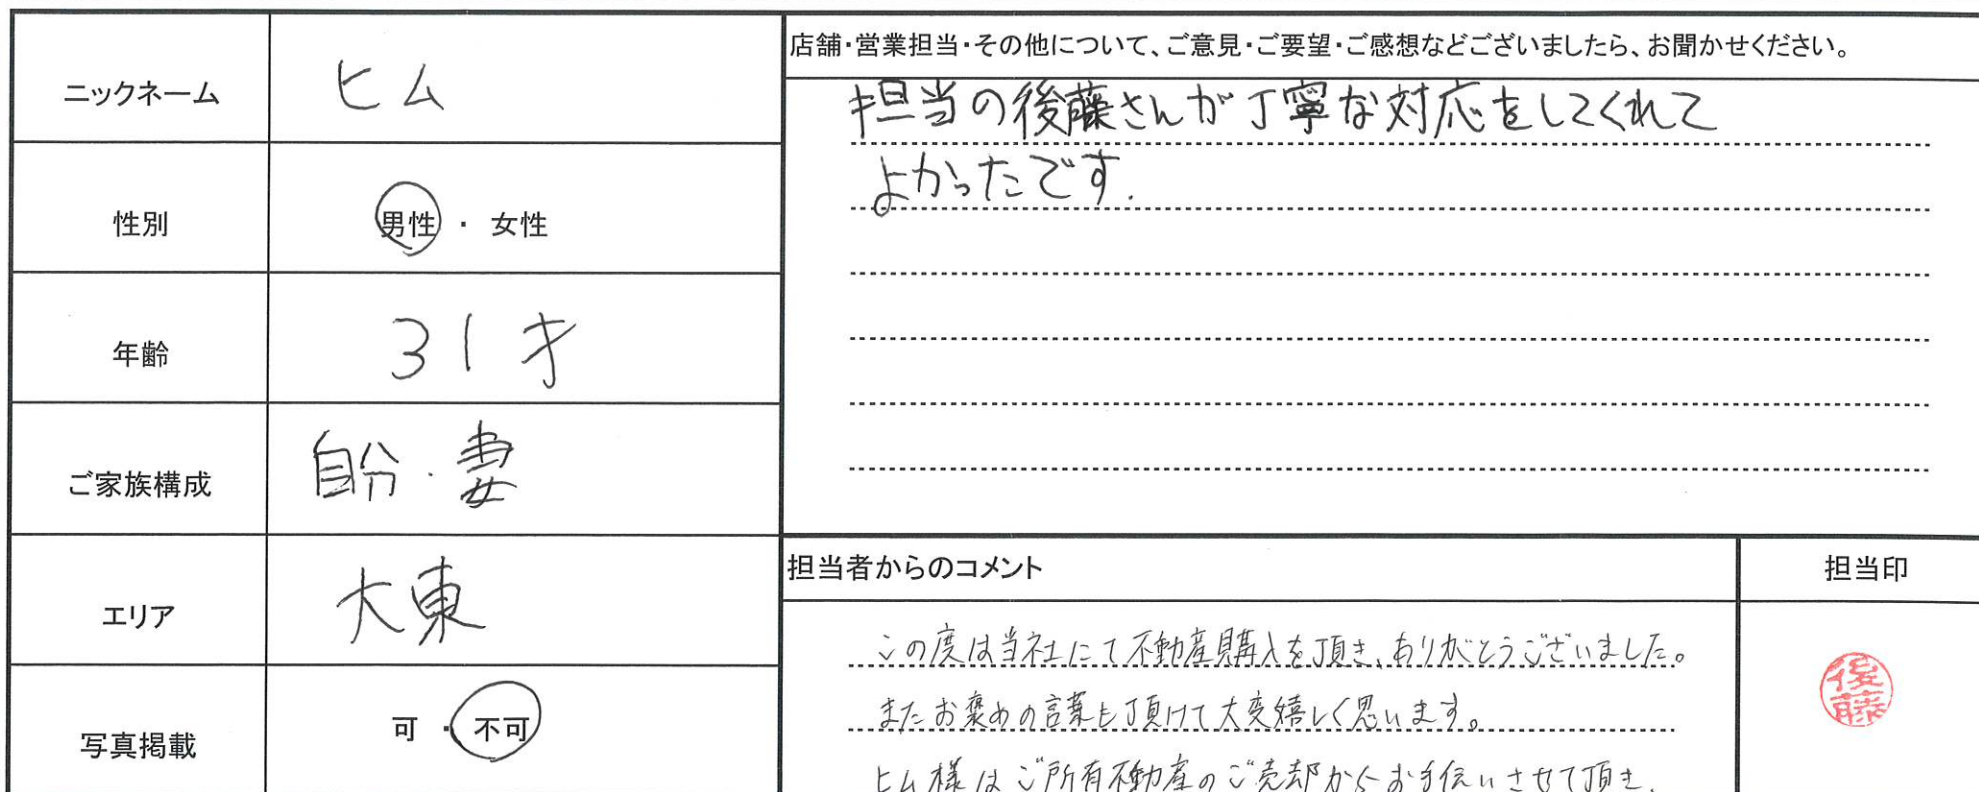 ニックネーム
ヒム
性別
男性 ・ 女性
年齢
31才
ご家族構成
自分・妻
エリア
大東
写真掲載
可 ・ 不可
店舗・営業担当・その他について、ご意見・ご要望・ご感想などございましたら、お聞かせください。
担当の後藤さんが丁寧な対応をしてくれて
よかったです.
担当者からのコメント
この度は当社にて不動産購入を頂き、ありがとうございました。
またお褒めの言葉も頂けて大変嬉しく思います。
ヒム様はご所有不動産のご売却からお手伝いさせて頂き、
担当印
後藤